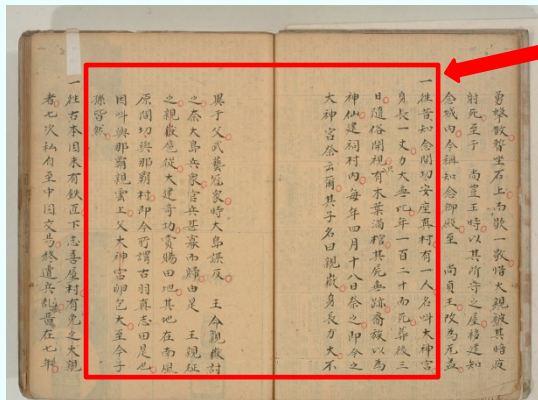 坐石上而歇一敵
射死至于 尚豊王時以其所守之屋移建知
念城内今稱知念御殿至 尚貞王改為瓦蓋
一往昔知念間切安座真村有一人名叫大神宮
身長一丈力大無比年一百二十而死葬後三
日隨俗開視有木葉滿棺其屍無跡裔族以為
神仙建祠村内每年四月十八日祭之即今之
大神宮祭云爾其子名曰親嶽身長力大不
異于父武藝冠家時大島謀反 王令親嶽討
之奈大島兵衆官兵甚寡而歸由是 王親征
之親嶽應從大建奇功賞賜田地其地在南風
原間切與那覇村即今所謂古羽真志田是也
因叫與那覇親雲上父大神宮卵包大至今子
孫皆然
一往古本國未有鐵匠下志喜屋村有免之大親
者七次私自至中國交易